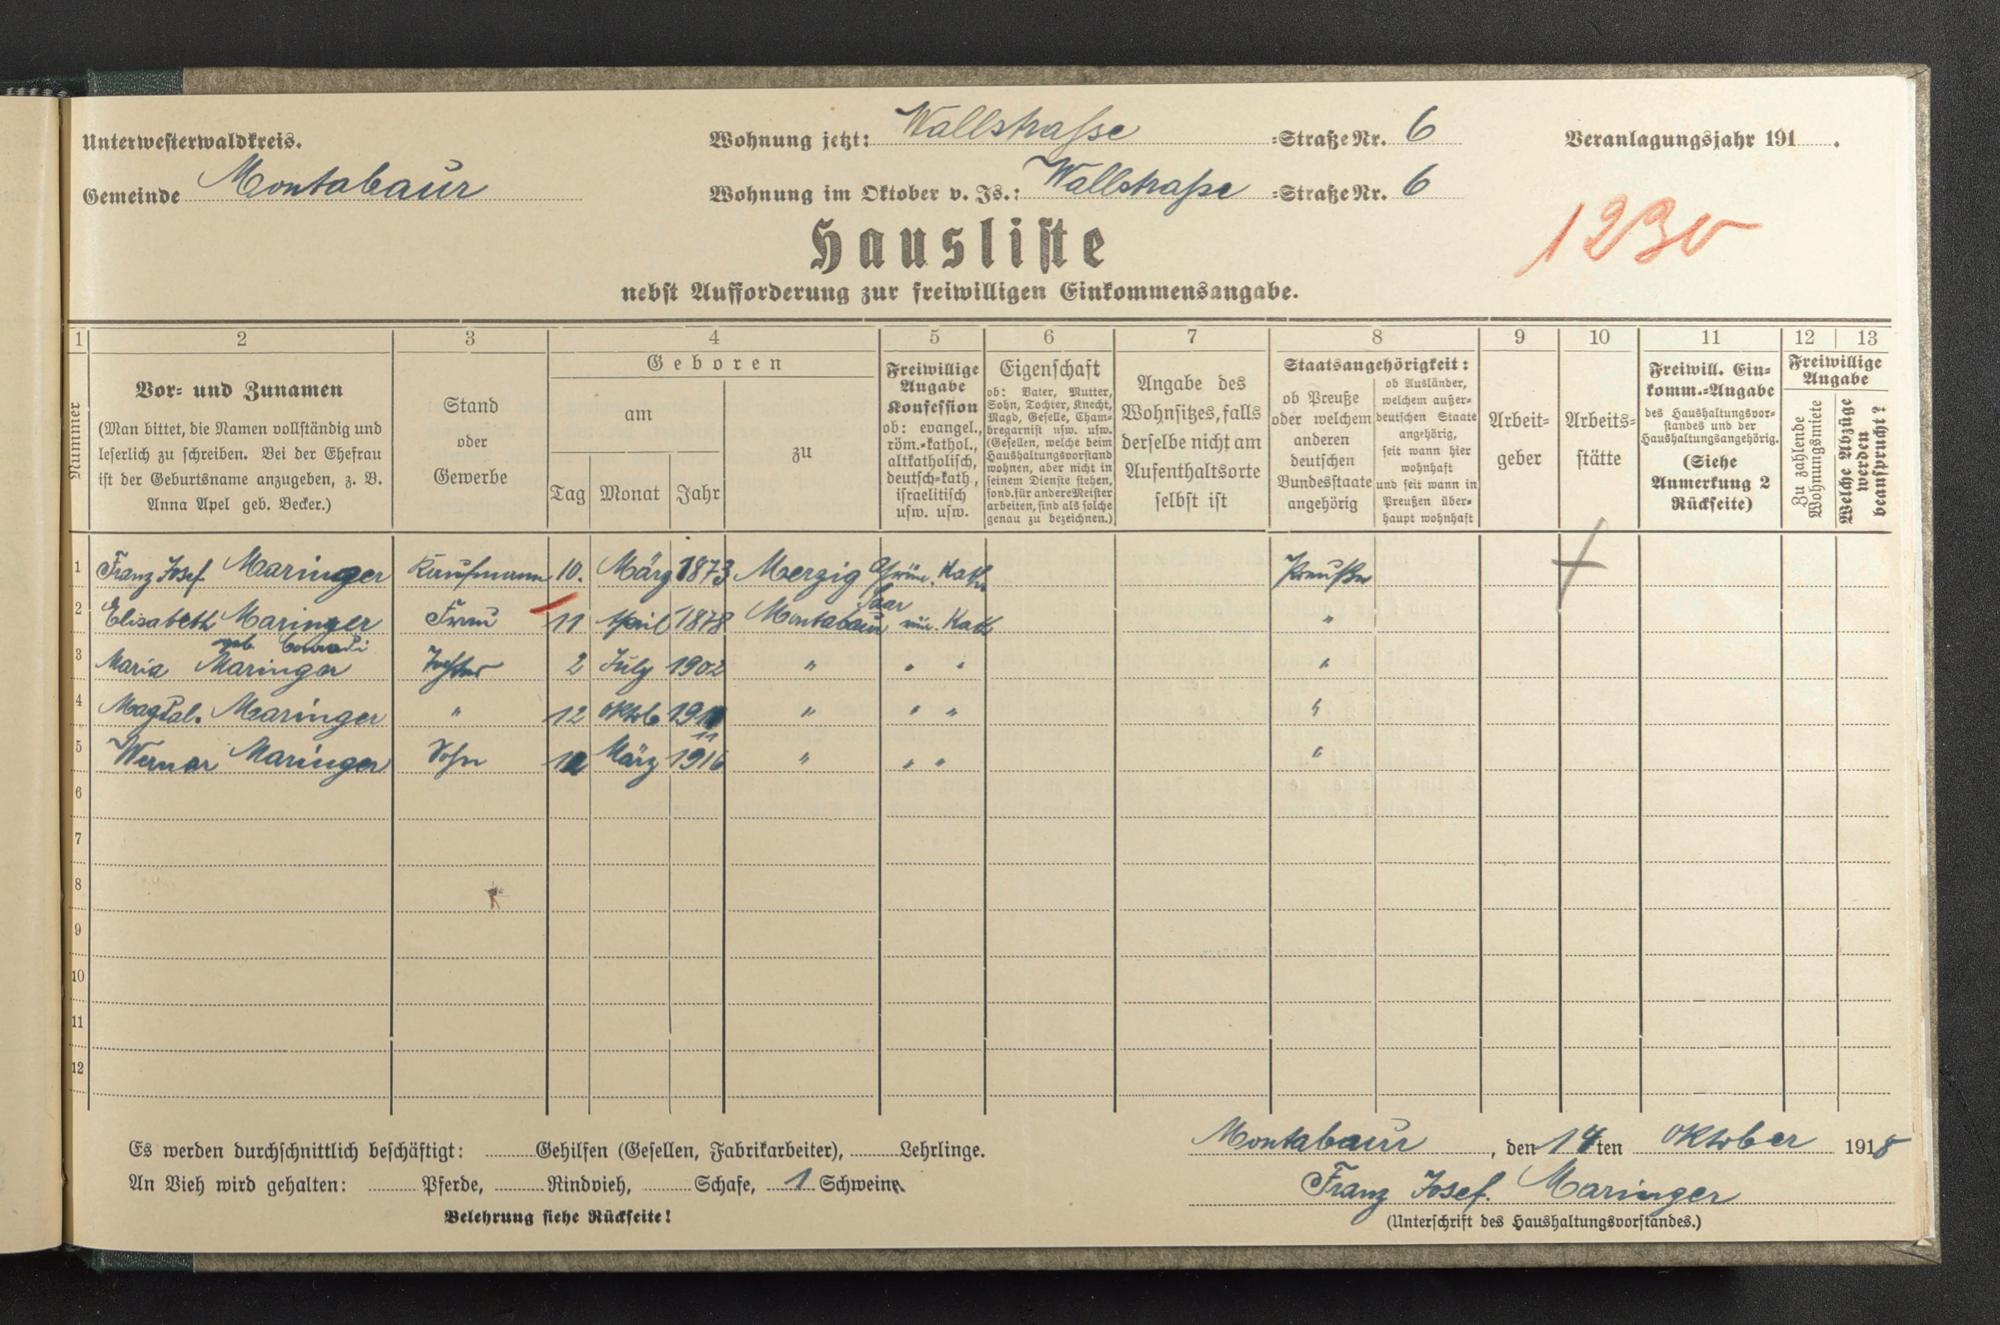 Unterwesterwaldkreis.
Wohnung jetzt: Wallstraße =Straße Nr. 6
Veranlagungsjahr 191 .
Gemeinde Montabaur
Wohnung im Oktober v. Js.: Wallstraße =Straße Nr. 6
1230
Hausliste
nebst Aufforderung zur freiwilligen Einkommensangabe.
1 2 3 4 5 6 7 8 9 10 11 12 13
Nummer
Vor- und Zunamen
(Man bittet, die Namen vollständig und
leserlich zu schreiben. Bei der Ehefrau
ist der Geburtsname anzugeben, z. B.
Anna Apel geb. Becker.)
Stand
oder
Gewerbe
Geboren
am
Tag Monat Jahr
zu
Freiwillige
Angabe
Konfession
ob: evangel.,
röm.-kathol.,
altkatholisch,
deutsch-kath.,
israelitisch
usw. usw.
Eigenschaft
ob: Vater, Mutter,
Sohn, Tochter, Knecht,
Magd, Geselle, Cham-
bregarnist usw. usw.
(Gesellen, welche beim
Haushaltungsvorstand
wohnen, aber nicht in
seinem Dienste stehen,
sond. für andere Meister
arbeiten, sind als solche
genau zu bezeichnen.)
Angabe des
Wohnsitzes, falls
derselbe nicht am
Aufenthaltsorte
selbst ist
Staatsangehörigkeit:
ob Preuße
oder welchem
anderen
deutschen
Bundesstaate
angehörig
ob Ausländer,
welchem außer-
deutschen Staate
angehörig,
seit wann hier
wohnhaft
und seit wann in
Preußen über-
haupt wohnhaft
Arbeit-
geber
Arbeits-
stätte
Freiwill. Ein-
komm.-Angabe
des Haushaltungsvor-
standes und der
Haushaltungsangehörig.
(Siehe
Anmerkung 2
Rückseite)
Freiwillige
Angabe
Zu zahlende
Wohnungsmiete
Welche Abzüge
werden
beansprucht?
1 Franz Josef Maringer Kaufmann 10. März 1873 Merzig Saar Kath. Preuße
2 Elisabeth Maringer Frau 11 April 1878 Montabaur Kath "
geb. Conradi
3 Maria Maringer Tochter 2 July 1902 " " " "
4 Magdal. Maringer " 12 Oktob 1911 " " " "
5 Werner Maringer Sohn März 1916 " " " "
6
7
8
9
10
11
12
Es werden durchschnittlich beschäftigt: Gehilfen (Gesellen, Fabrikarbeiter), Lehrlinge.
An Vieh wird gehalten: Pferde, Rindvieh, Schafe, 1 Schweine
Belehrung siehe Rückseite!
Montabaur , den 14ten Oktober 1918
Franz Josef Maringer
(Unterschrift des Haushaltungsvorstandes.)